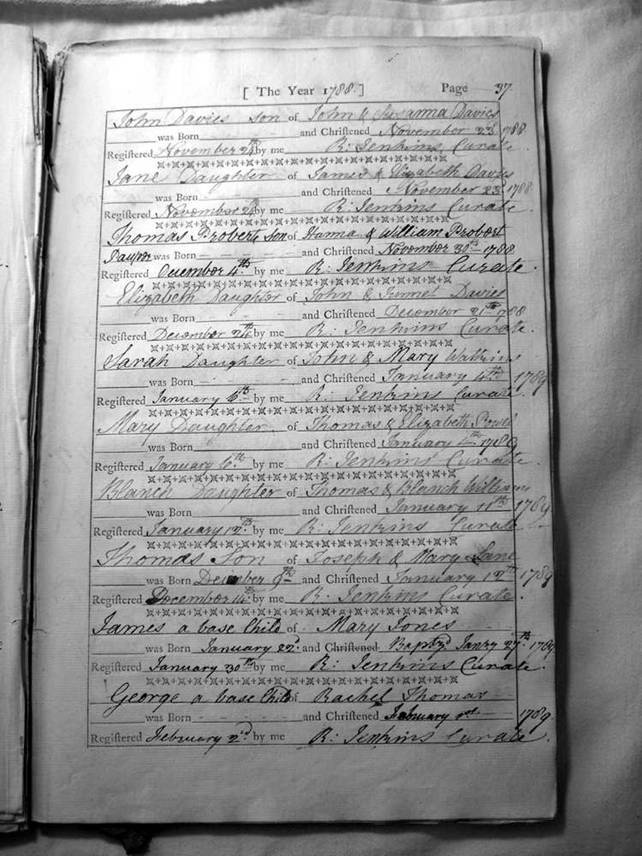 [ The Year 1788. ] Page 37
John Davies son of John & Susanna Davies
was Born and Christened November 23 1788
Registered November 24th by me R: Jenkins Curate.
Jane Daughter of James & Elizabeth Davies
was Born and Christened November 23 1788
Registered November 24 by me R: Jenkins Curate.
Thomas Probert son of Hanna & William Probert
Pauper was Born and Christened November 30th 1788
Registered December 4th by me R: Jenkins Curate.
Elizabeth Daughter of John & Davies
was Born and Christened December 21st 1788
Registered December 24th by me R: Jenkins Curate.
Sarah Daughter of John & Mary Watkins
was Born and Christened January 4th 1789
Registered January 6th by me R: Jenkins Curate.
Mary Daughter of Thomas & Elizabeth
was Born and Christened January 1789
Registered January 6th by me R: Jenkins Curate.
Blanch Daughter of Thomas & Blanch Williams
was Born and Christened January 11th 1789
Registered January 12th by me R: Jenkins Curate
Thomas Son of Joseph & Mary Lane
was Born December 9th and Christened January 12th 1789
Registered December by me R: Jenkins Curate.
James a base Child of Mary Jones
was Born January 22d. and Christened Baptzd Janry 27th 1789
Registered January 30th by me R: Jenkins Curate.
George a base Child of Rachel Thomas
was Born and Christened February 1789
Registered February 2d by me R: Jenkins Curate.